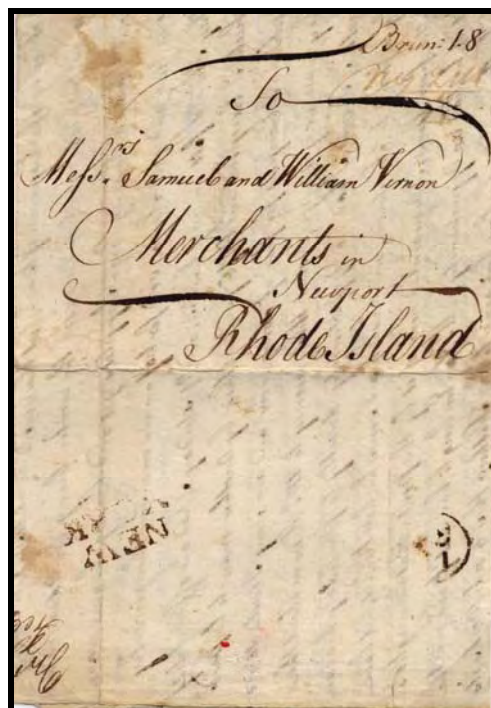 Brun: 1.8
To
Messrs. Samuel and William Vernon
Merchants in
Newport
Rhode Island
NEW